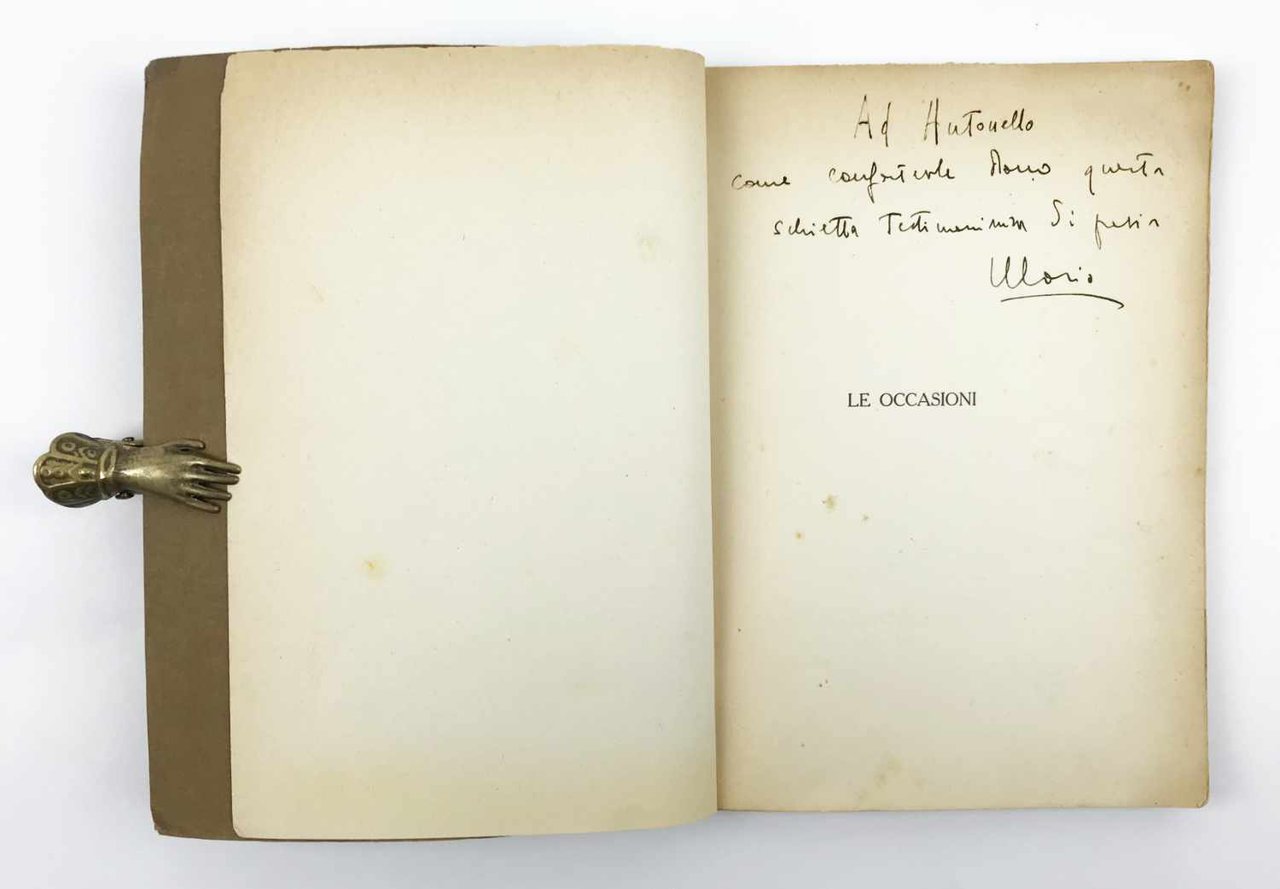 Ad Antonello
come confortevole dono questa
schietta testimonianza di poesia
Mario
LE OCCASIONI